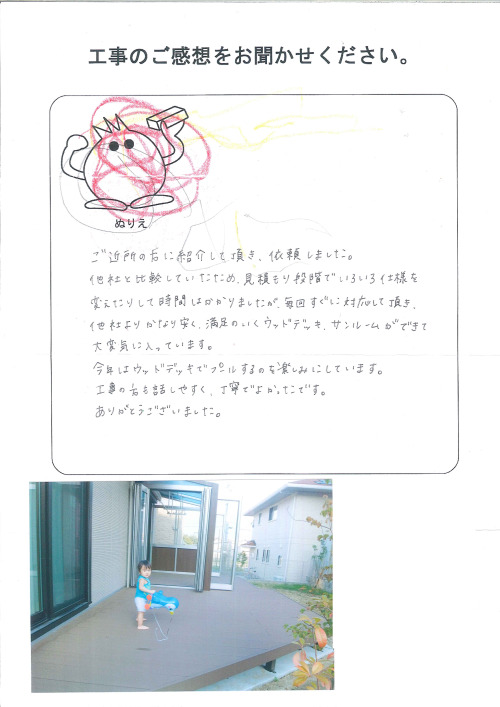 工事のご感想をお聞かせください。
ぬりえ
ご近所の方に紹介して頂き、依頼しました。
他社と比較していたため、見積もり段階でいろいろ仕様を
変えたりして時間はかかりましたが、毎回すぐに対応して頂き、
他社よりかなり安く、満足のいくウッドデッキ、サンルームができて
大変気に入っています。
今年はウッドデッキでプールするのを楽しみにしています。
工事の方も話しやすく、丁寧でよかったです。
ありがとうございました。